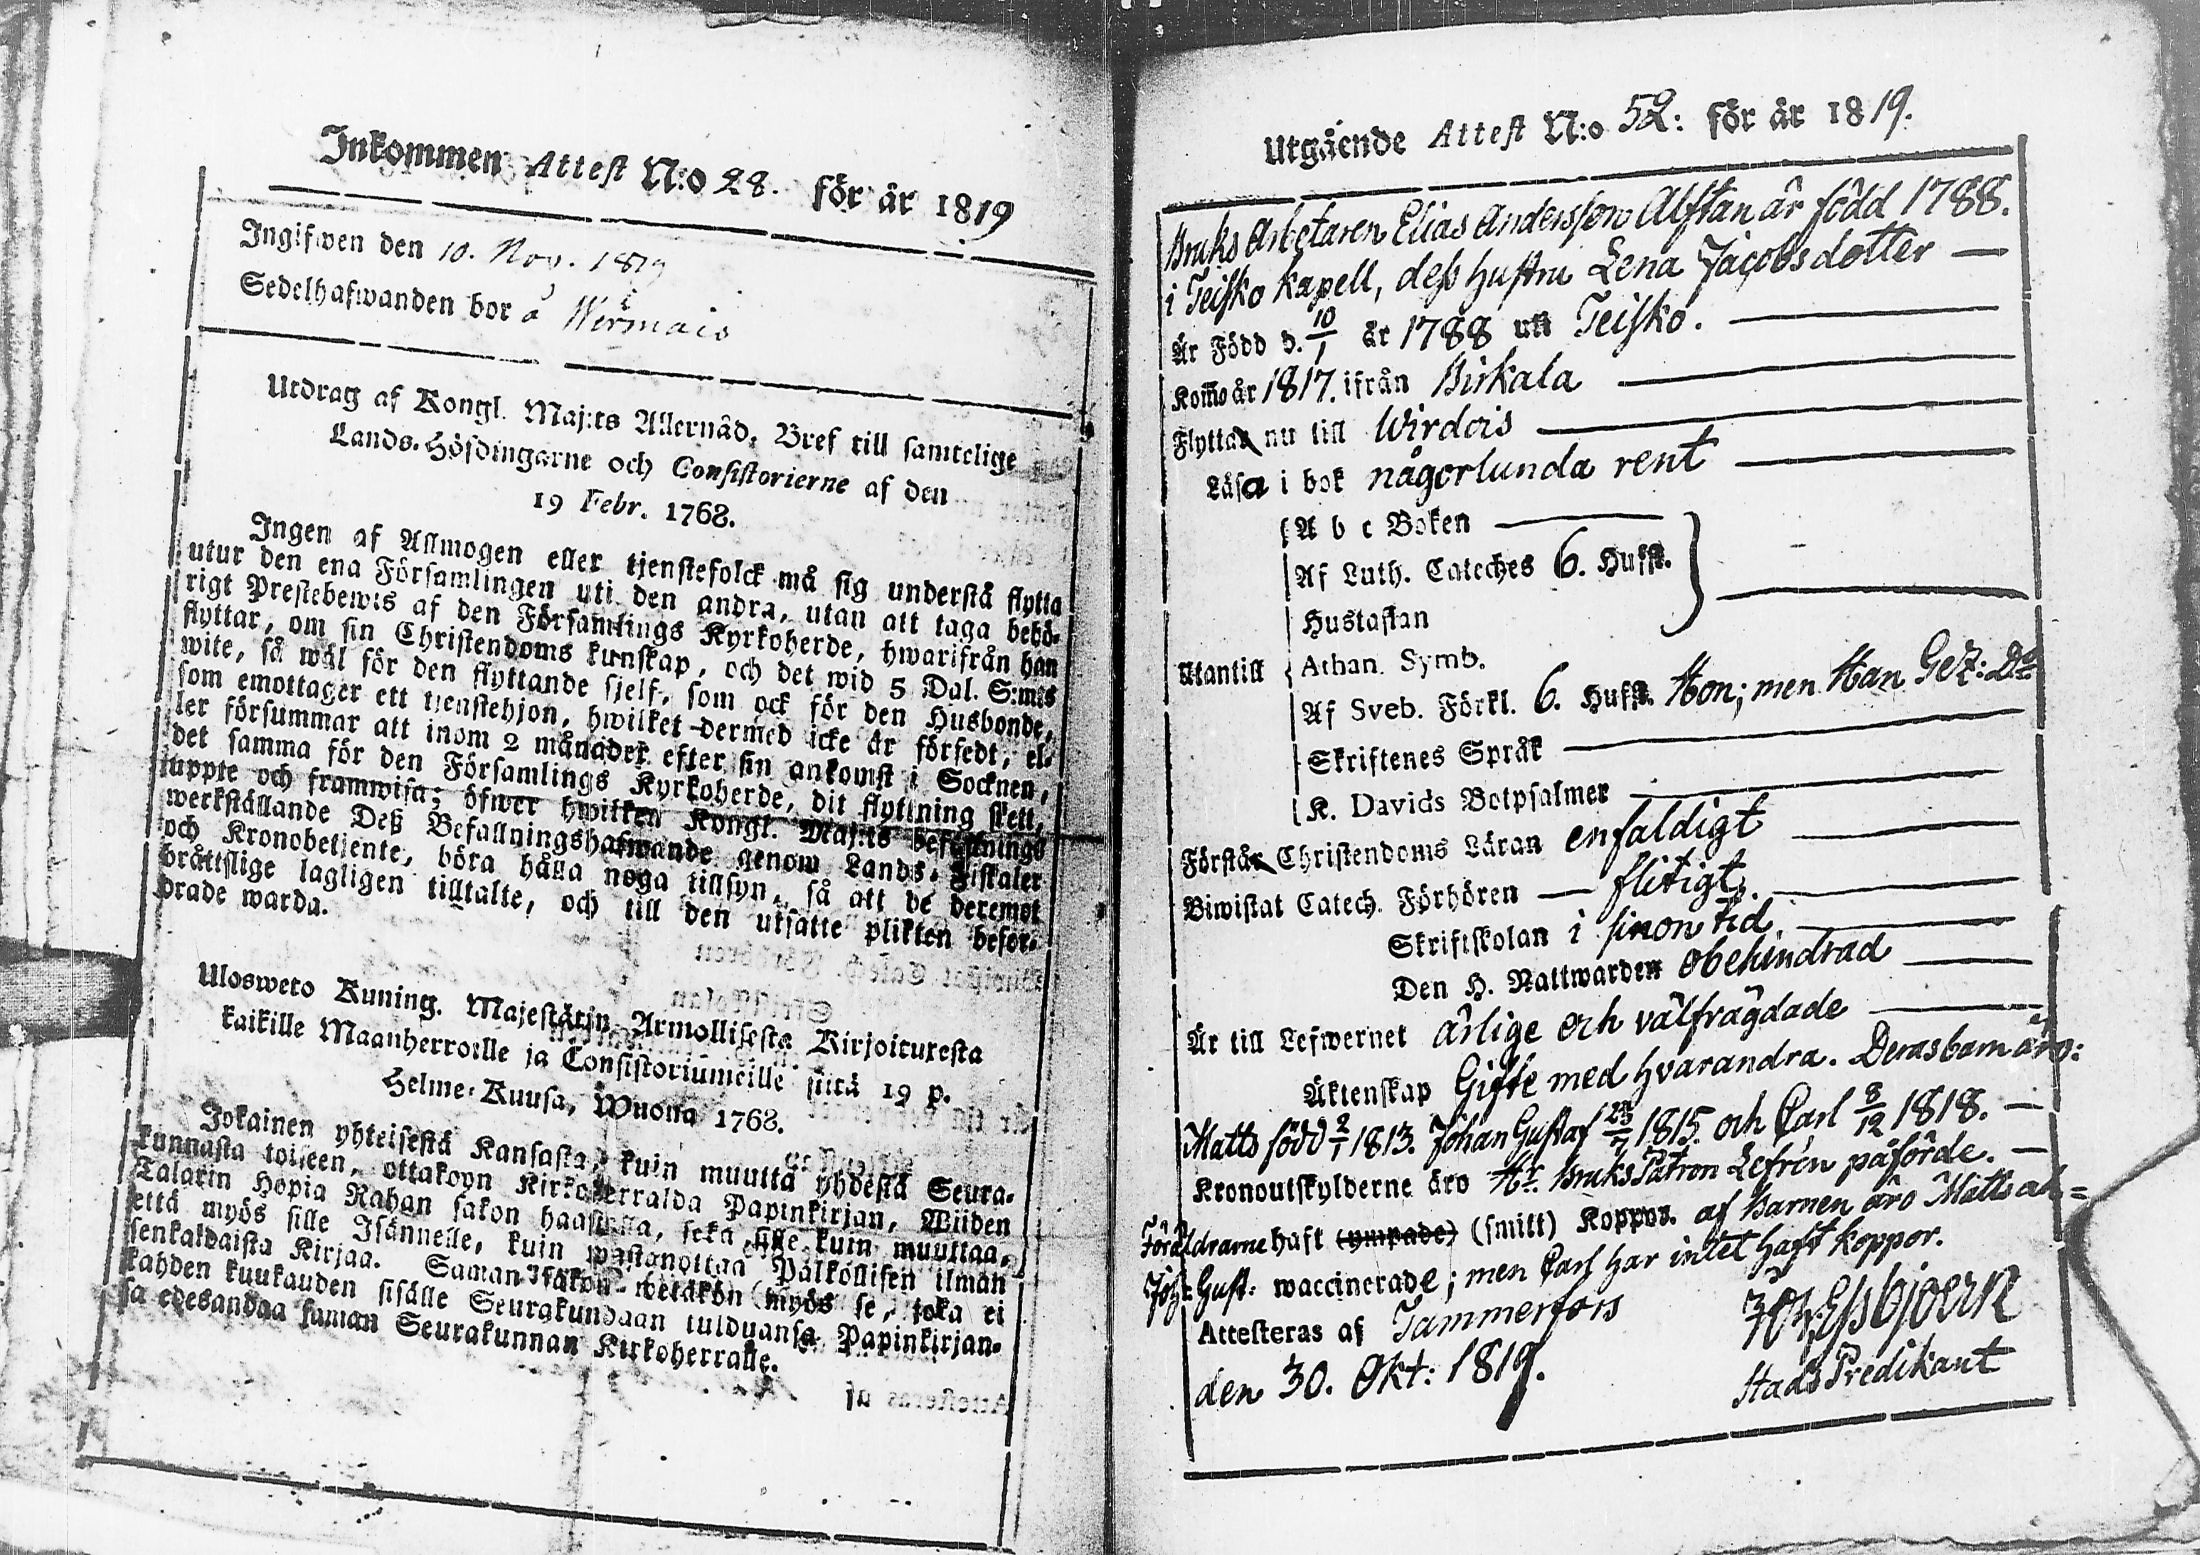 Inkommen Attest N:o 28. för år 1819
Ingifwen den 10. Nov. 1819
Sedelhafwanden bor å
Utdrag af Kongl. Maj:ts Allernåd. Bref till samtelige
Lands-Höfdingarne och Consistorierne af den
19 Febr. 1768.
Ingen af Allmogen eller tjenstefolck må sig understå flytta
utur den ena Församlingen uti den andra, utan att taga behö-
rigt Prestebewis af den Församlings Kyrkoherde, hwarifrån han
flyttar, om sin Christendoms kunskap, och det wid 5 Dal. S:mts
wite, så wäl för den flyttande sjelf, som ock för den Husbonde,
som emottager ett tjenstehjon, hwilket dermed icke är försedt, el-
ler försummar att inom 2 månader efter sin ankomst i Socknen,
det samma för den Församlings Kyrkoherde, dit flyttning skett,
uppte och framwisa; öfwer hwilken Kongl. Maj:ts befallnings
werkställande Deß Befallningshafwande genom Lands-Fiskaler
och Kronobetjente, böra hålla noga tillsyn, så att de deremot
bråttslige lagligen tilltalte, och till den utsatte plikten befor-
drade warda.
Ulosweto Kuning. Majestätin Armollisesta Kirjoituxesta
kaikille Maanherroille ja Consistoriumeille siitä 19 p.
Helme-Kuusa, Wuona 1768.
Jokainen yhteisestä Kansasta, kuin muutta yhdestä Seura-
kunnasta toiseen, ottakoon Kirkoherralda Papinkirjan, Wiiden
Talarin Hopia Rahan sakon haastolla, sekä sille kuin muuttaa,
että myös sille Isännelle, kuin wastanottaa Palkollisen ilman
senkaldaista Kirjaa. Saman sakon wetäkön myös se, joka ei
kahden kuukauden sisälle Seurakundaan tulduansa Papinkirjan-
sa edesandaa saman Seurakunnan Kirkoherralle.
Utgående Attest N:o 52: för år 1819.
Bruks Arbetaren Elias Andersson Alfstan är född 1788.
i Teisko kapell, dess hustru Lena Jacobsdotter —
Är Född d. 10/1 år 1788 uti Teisko. —
Kom̄o år 1817. ifrån Birkala —
Flytta nu till Wirdois —
Läsa i bok någorlunda rent —
A b c Boken —
Af Luth. Cateches 6. Hufst.
Hustaflan
Utantill Athan. Symb.
Af Sveb. Förkl. 6. Hufst. Hon; men Han
Skriftenes Språk —
K. Davids Botpsalmer —
Förstå Christendoms Läran enfaldigt —
Biwistat Catech. Förhören — flitigt. —
Skriftskolan i sinon tid —
Den H. Nattwarden obehindrad —
Är till Lefwernet ärlige och välfrägdade —
Äktenskap Gifte med hvarandra. Deras barn äro:
Matts född 2/1 1813. Johan Gustaf 1815. och Carl 8/12 1818. —
Kronoutskylderne äro Hr. Bruks Patron Lefrén påförde. —
Föräldrarne haft (ympade) (smitt) Koppor. af Barnen äro Matts och
Joh: Gust: waccinerade; men Carl har intet haft koppor.
Attesteras af Tammerfors
den 30. Okt: 1819.
Joh: Essbjoern
Stads Predikant